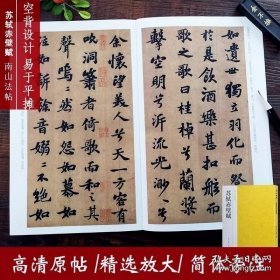 空背设计 易于平摊
苏轼赤壁赋 南山法帖
如遺世獨立羽化而登
於是飲酒樂甚扣舷而
歌之歌曰桂棹兮蘭槳
擊空明兮泝流光渺渺
余懷望美人兮天一方客有
吹洞簫者倚歌而和之其
聲嗚嗚然如怨如慕如
泣如訴餘音嫋嫋不絕如
苏轼赤壁赋
高清原帖/精选放大/简体旁注